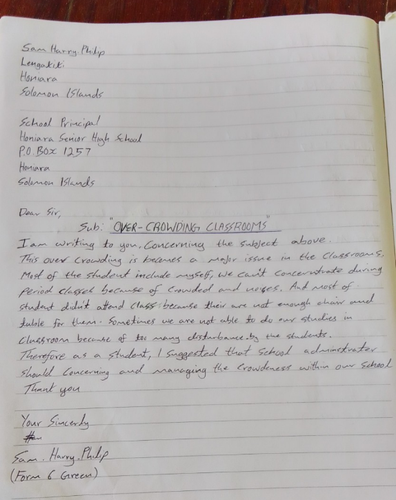 Sam Harry Philip
Lengakiki
Honiara
Solomon Islands
School Principal
Honiara Senior High School
P.O. Box 1257
Honiara
Solomon Islands
Dear Sir,
Sub: "OVER-CROWDING CLASSROOMS"
I am writing to you. Concerning the subject above.
This over crowding is becomes a major issue in the classrooms.
Most of the student include myself, we can't concerntrate during
period classes because of crowded and noises. And most of
student didn't atend class because their are not enough chair and
table for them. Sometimes we are not able to do our studies in
classroom because of too many disturbance by the students.
Therefore as a student, I suggested that school administrater
should concerning and managing the crowdeness within our school
Thank you
Your Sincerly
Sam. Harry. Philip
(Form 6 Green)